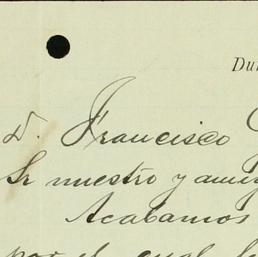 Du
D. Francisco
Sr nuestro y amig
Acabamos
por el cual